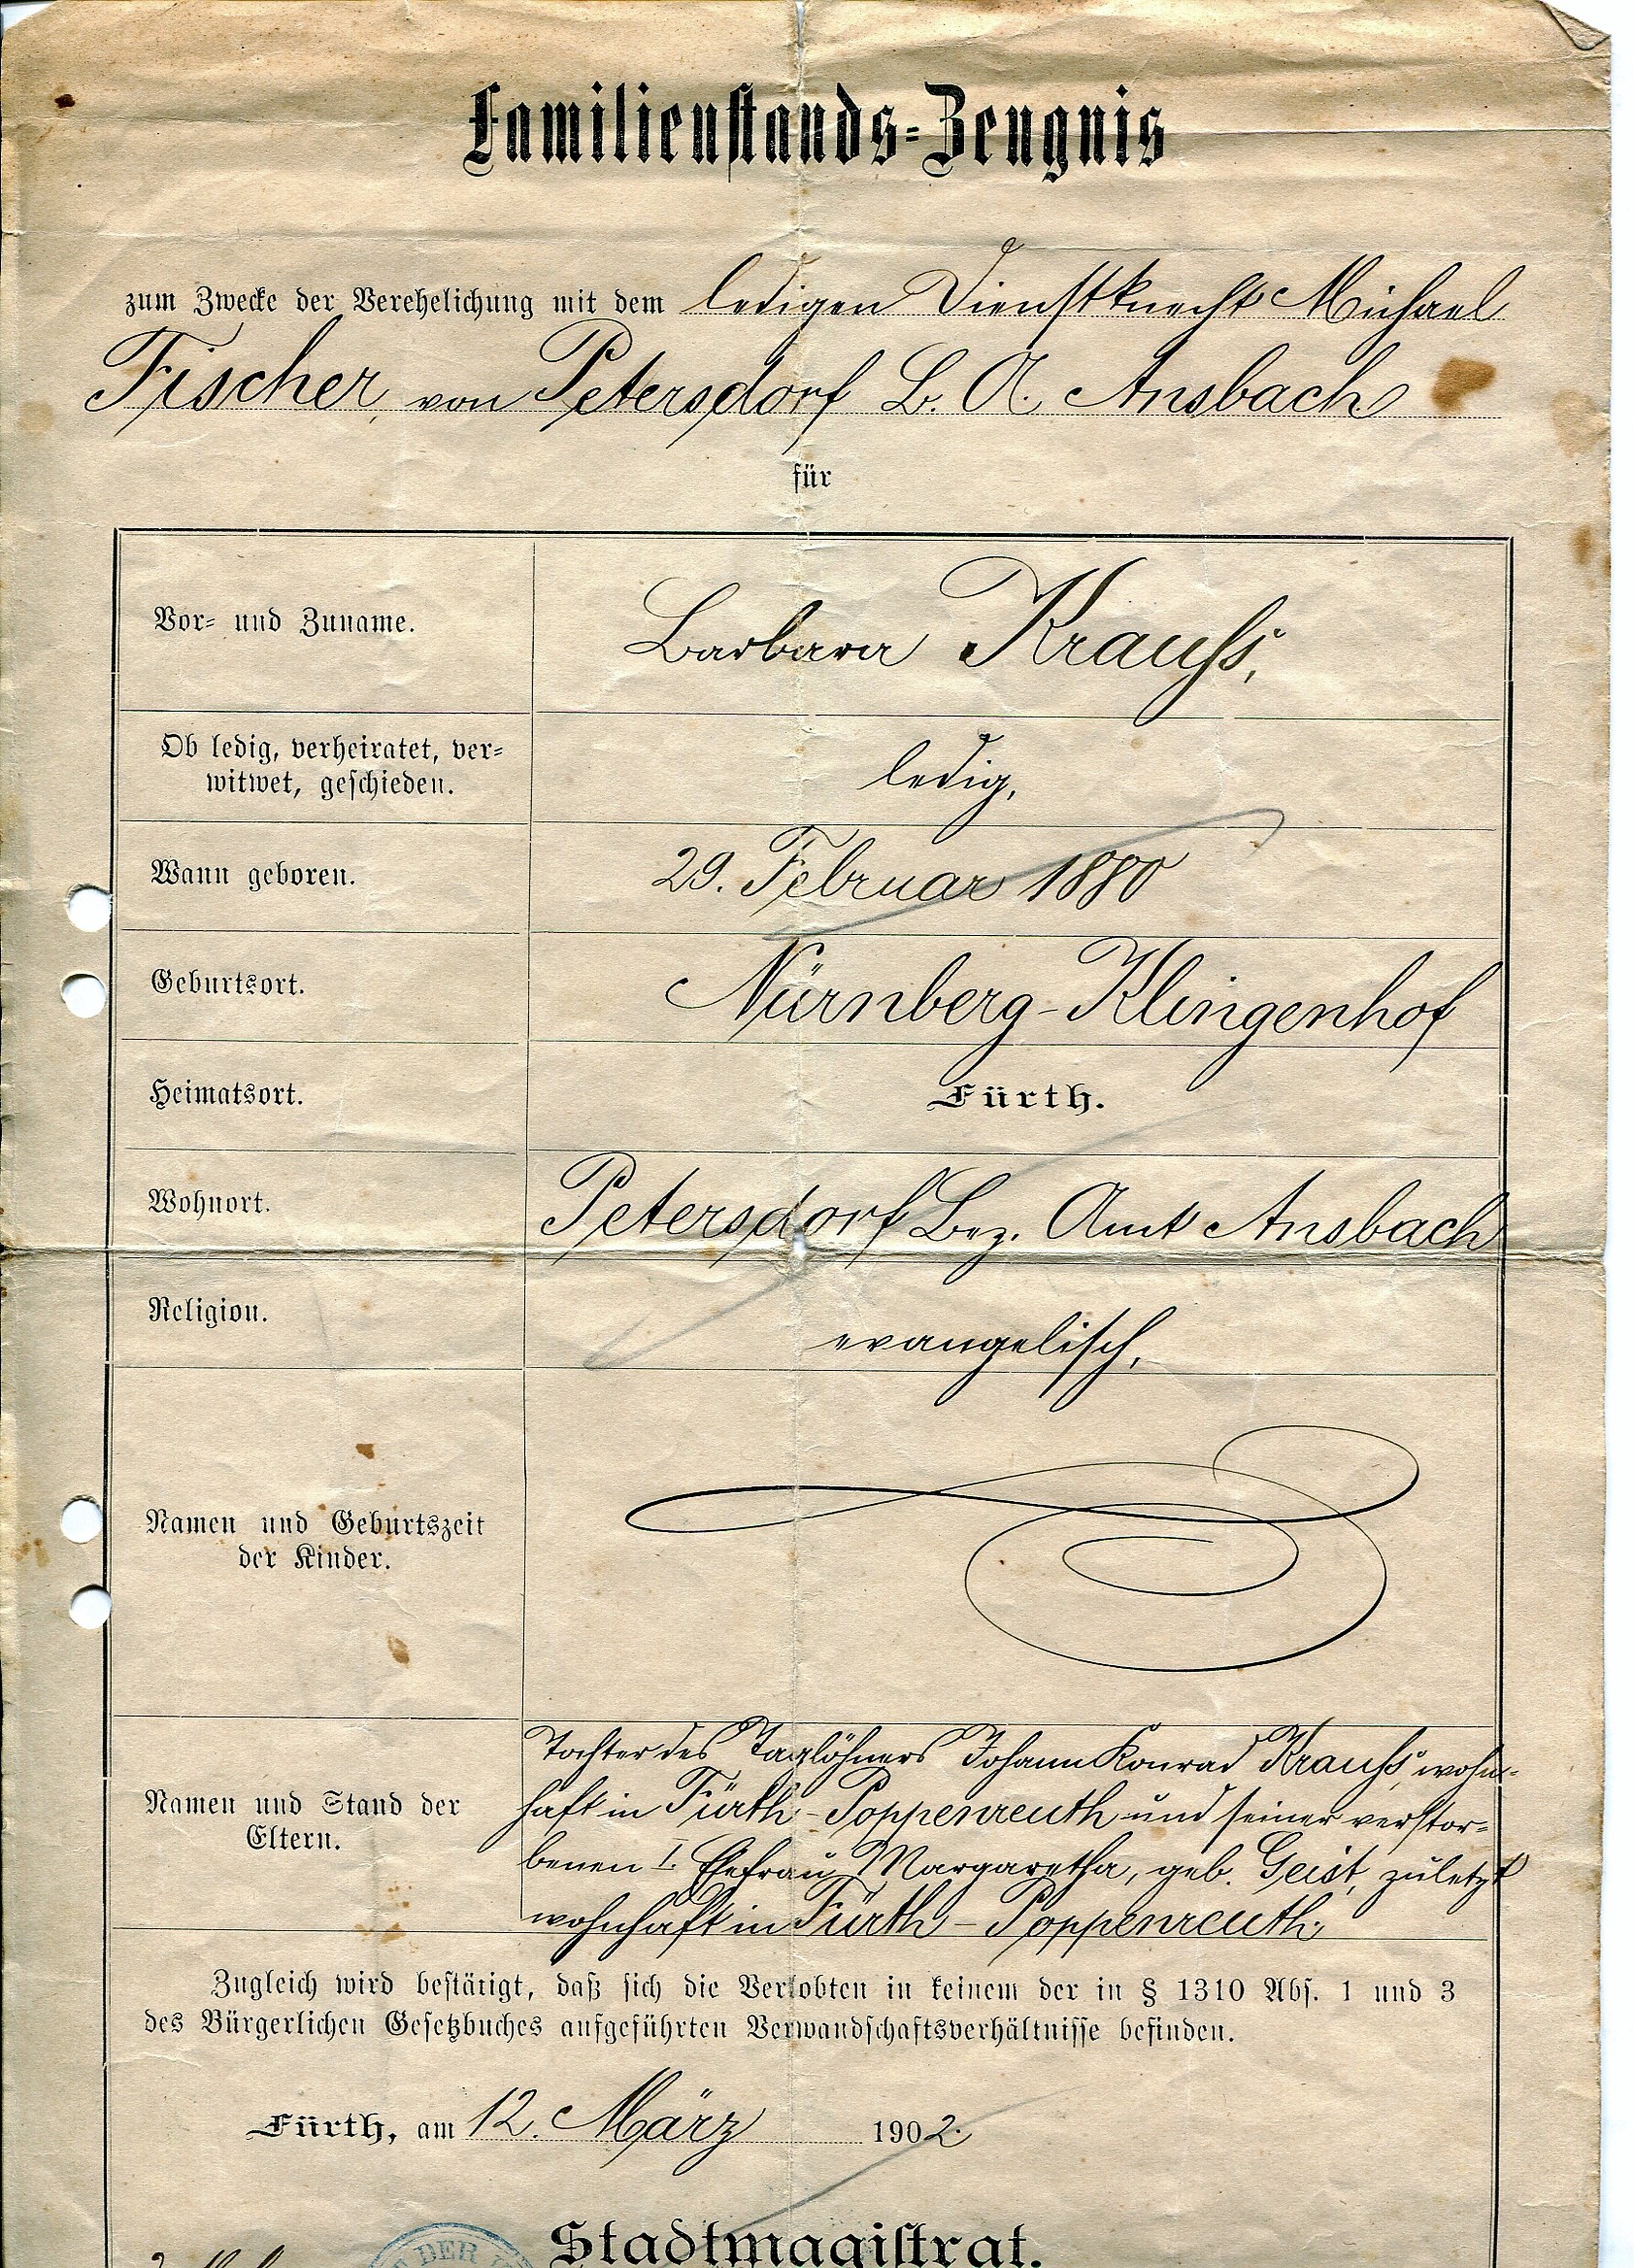 Familienstands-Zeugnis
zum Zwecke der Verehelichung mit dem ledigen Dienstknecht Michael
Fischer, von Petersdorf B. A. Ansbach
für
Vor- und Zuname.
Barbara Krauß,
Ob ledig, verheiratet, ver-
witwet, geschieden.
ledig,
Wann geboren.
29. Februar 1880
Geburtsort.
Nürnberg-Klingenhof
Heimatsort.
Fürth.
Wohnort.
Petersdorf Bez. Amt Ansbach
Religion.
evangelisch,
Namen und Geburtszeit
der Kinder.
Namen und Stand der
Eltern.
Tochter des Taglöhners Johann Konrad Krauß, wohn-
haft in Fürth-Poppenreuth und seiner verstor-
benen I. Ehefrau Margaretha, geb. Geist, zuletzt
wohnhaft in Fürth-Poppenreuth.
Zugleich wird bestätigt, daß sich die Verlobten in keinem der in § 1310 Abs. 1 und 3
des Bürgerlichen Gesetzbuches aufgeführten Verwandschaftsverhältnisse befinden.
Fürth, am 12. März 1902.
Stadtmagistrat.
DER